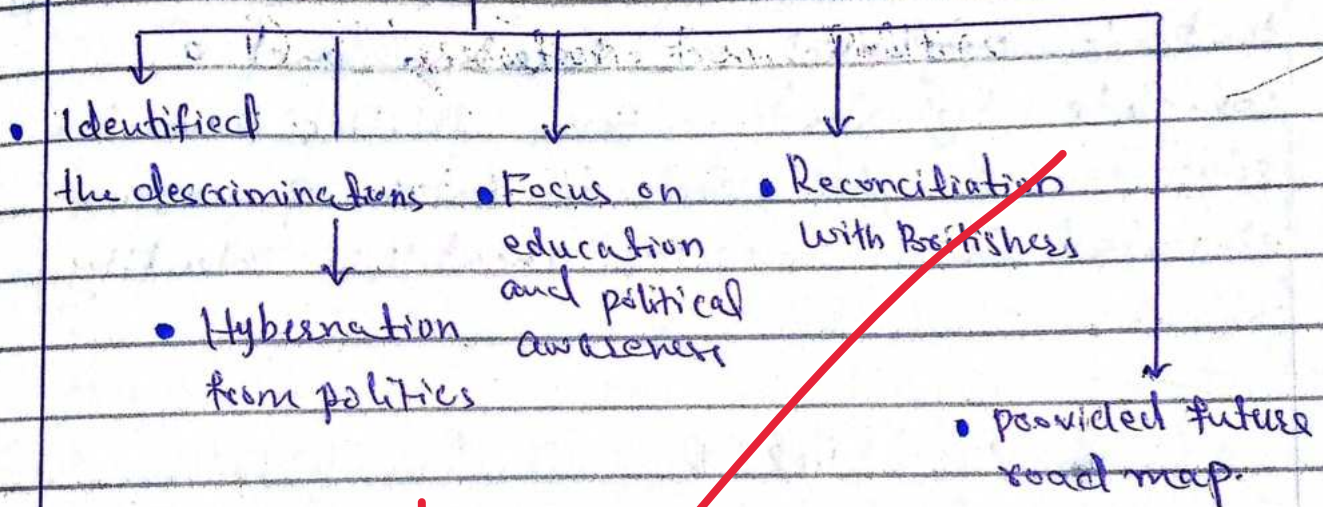 • Identified
the descriminations
• Hybernation
from politics
• Focus on
education
and political
awareness
• Reconciliation
with Britishers
• provided future
road map.